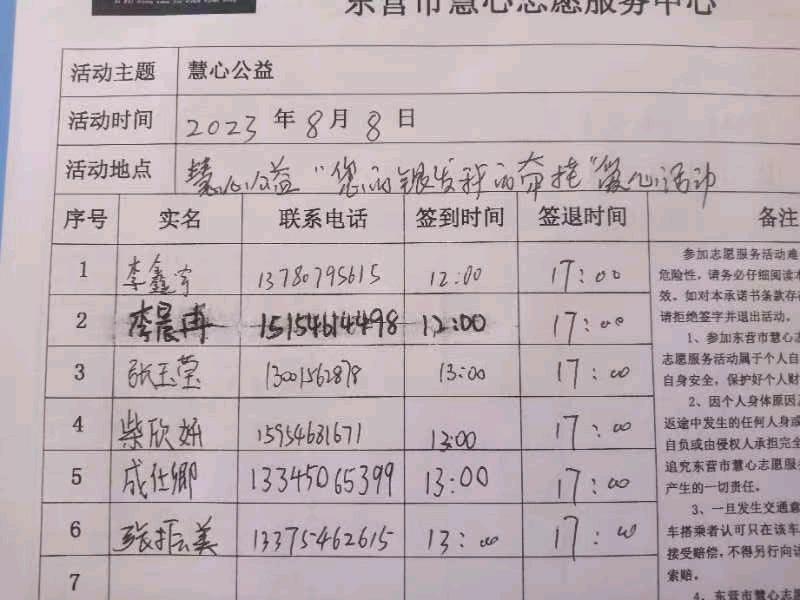 东营市慧心志愿服务中心
活动主题 慧心公益
活动时间 2023 年 8 月 8 日
活动地点 慧心公益“您的银发我的牵挂”爱心活动
序号 实名 联系电话 签到时间 签退时间 备注
1 李鑫宇 13780795615 12:00 17:00
2 李晨冉 15154614498 12:00 17:00
3 张玉莹 13001562878 13:00 17:00
4 柴欣妍 15954681671 13:00 17:00
5 成仕卿 13345065399 13:00 17:00
6 张振美 13375462615 13:00 17:00
7
参加志愿服务活动难
危险性，请务必仔细阅读本
效。如对本承诺书条款存
请拒绝签字并退出活动。
1、参加东营市慧心志
志愿服务活动属于个人自
自身安全，保护好个人财
2、因个人身体原因及
返途中发生的任何人身或
自负或由侵权人承担完全
追究东营市慧心志愿服务
产生的一切责任。
3、一旦发生交通意
车搭乘者认可只在该车
接受赔偿，不得另行向该
索赔。
4、东营市慧心志愿